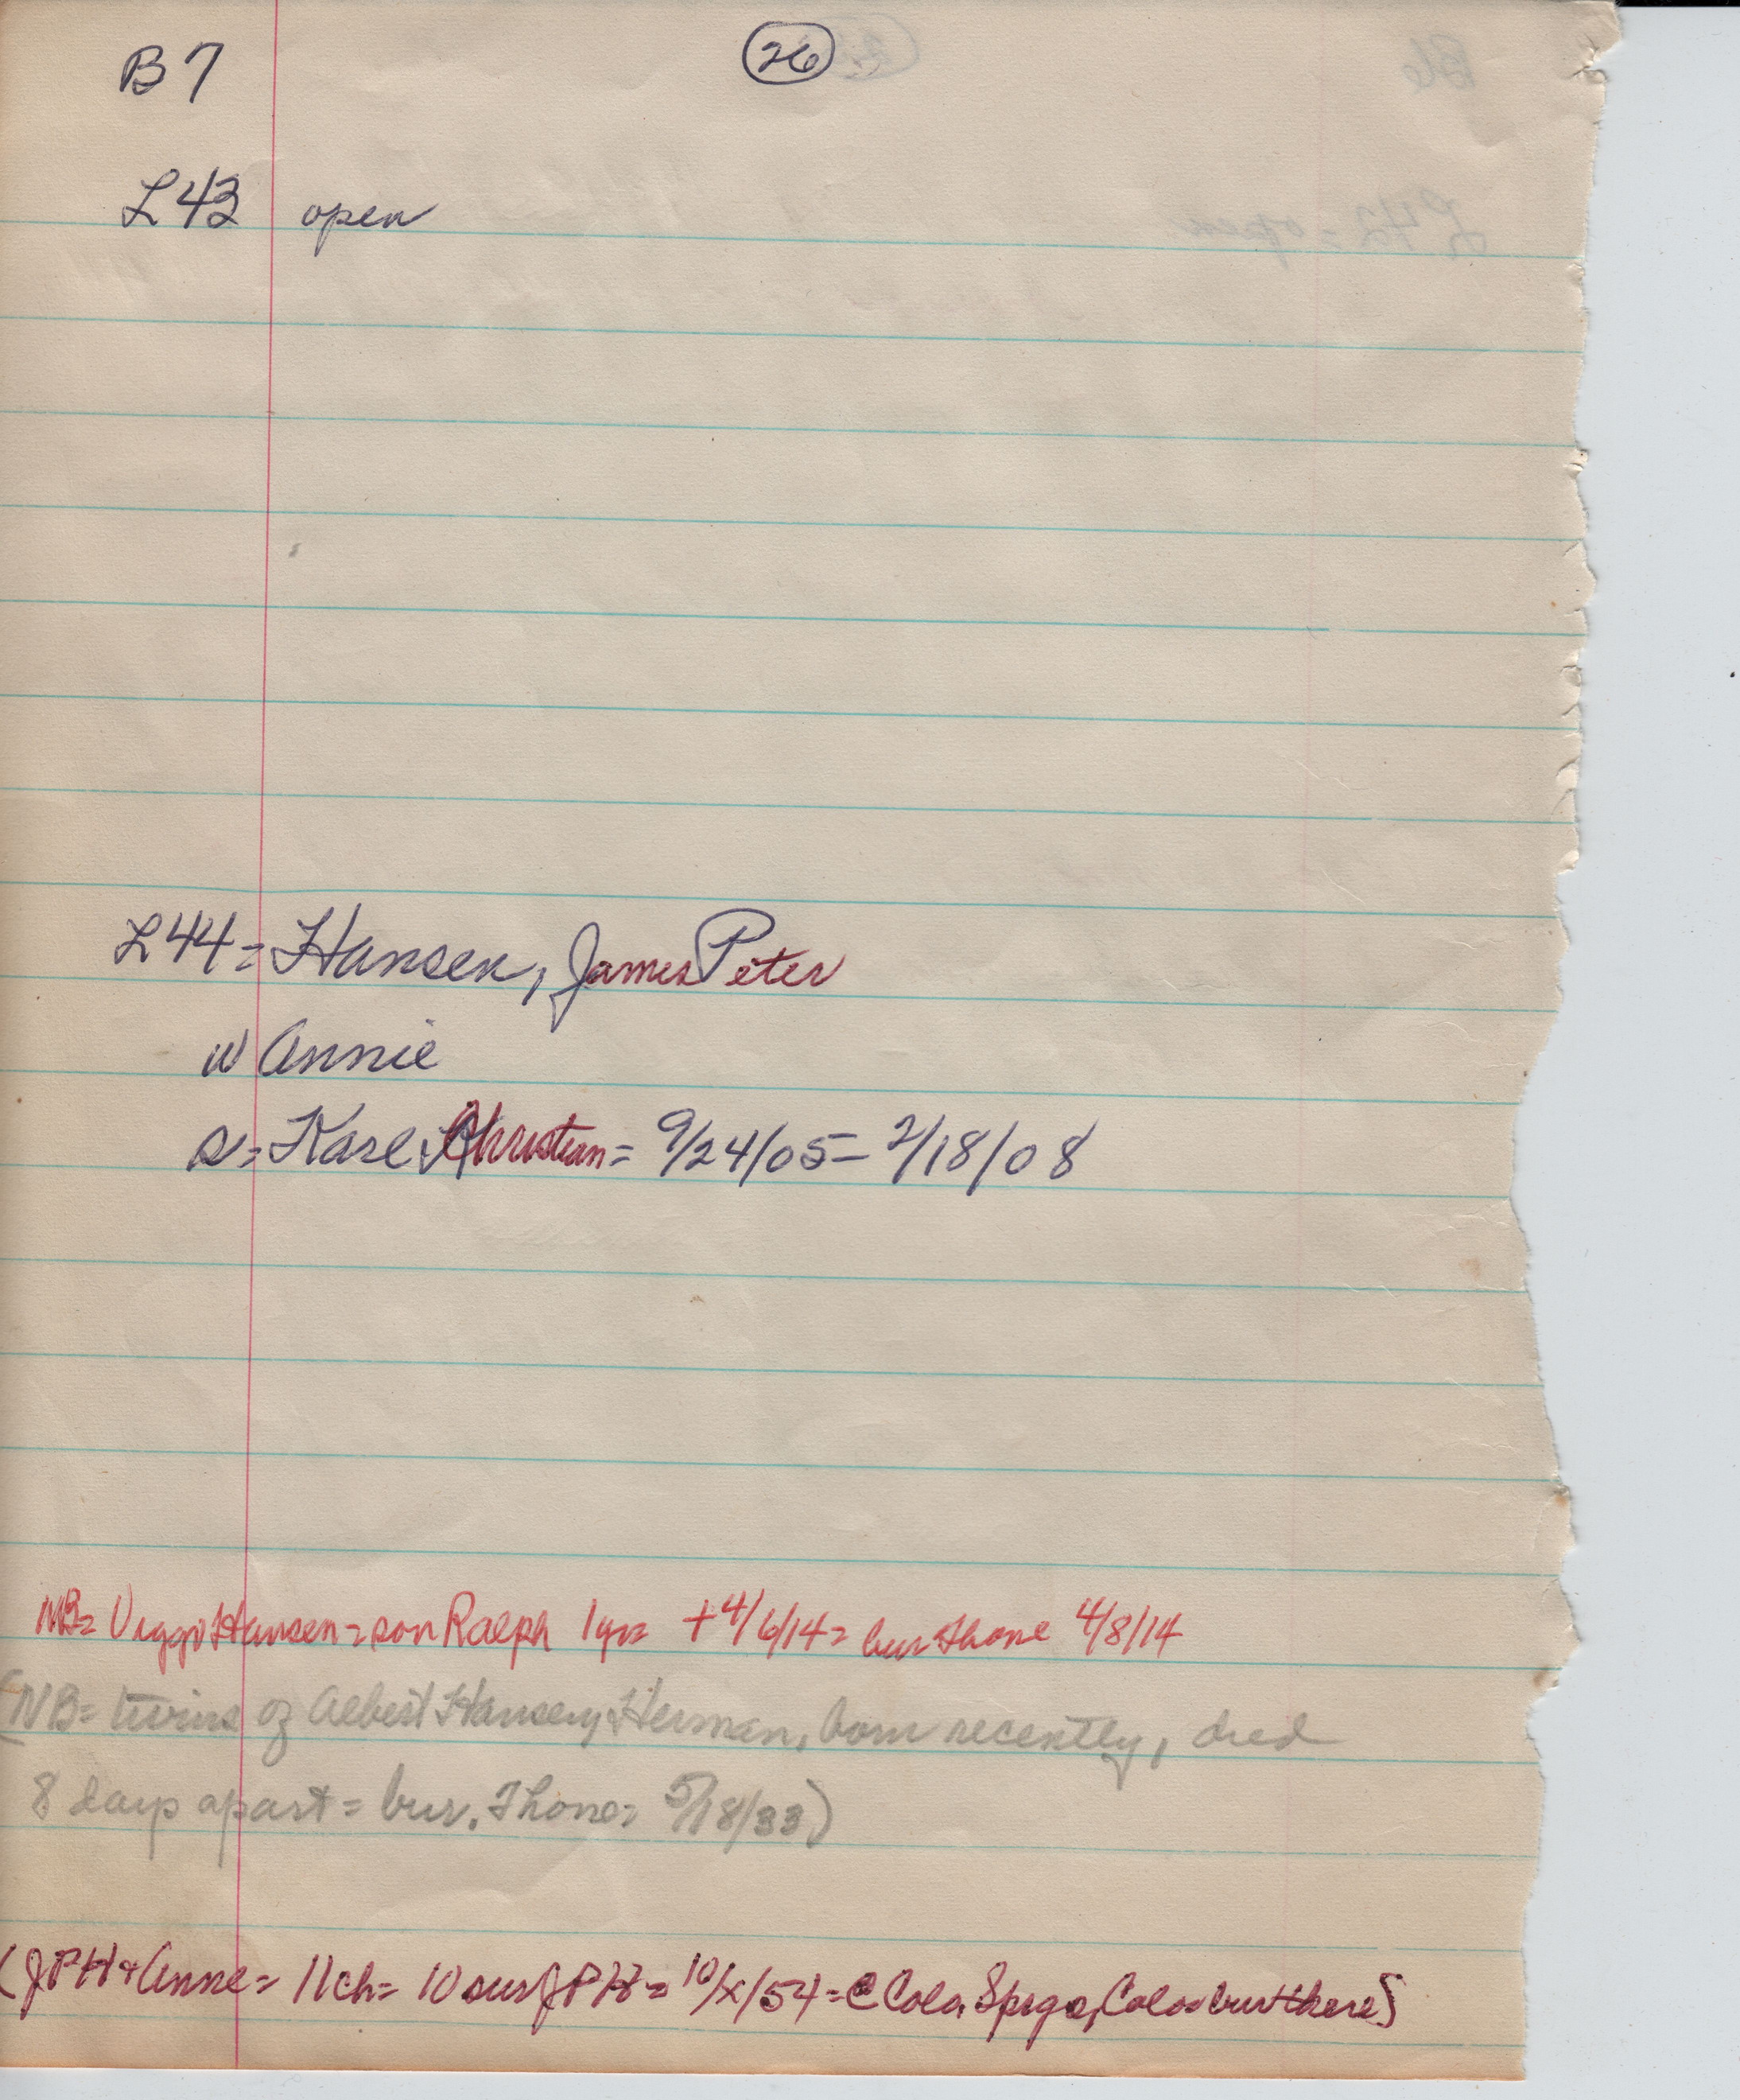 B7
26
L43 open
L44 = Hansen, James Peter
w Annie
s = Karl Christian = 9/24/05 - 2/18/08
NB = Viggo Hansen = son Ralph 1 yr = + 4/6/14 = bur thone 4/8/14
(NB = twins of Albert Hansen, Herman, born recently, died
8 days apart = bur. Thone = 5/18/33)
(JPH + Anne = 11 ch = 10 sur JPH = 10/x/54 = @ Colo. Spgs, Colo = bur there)